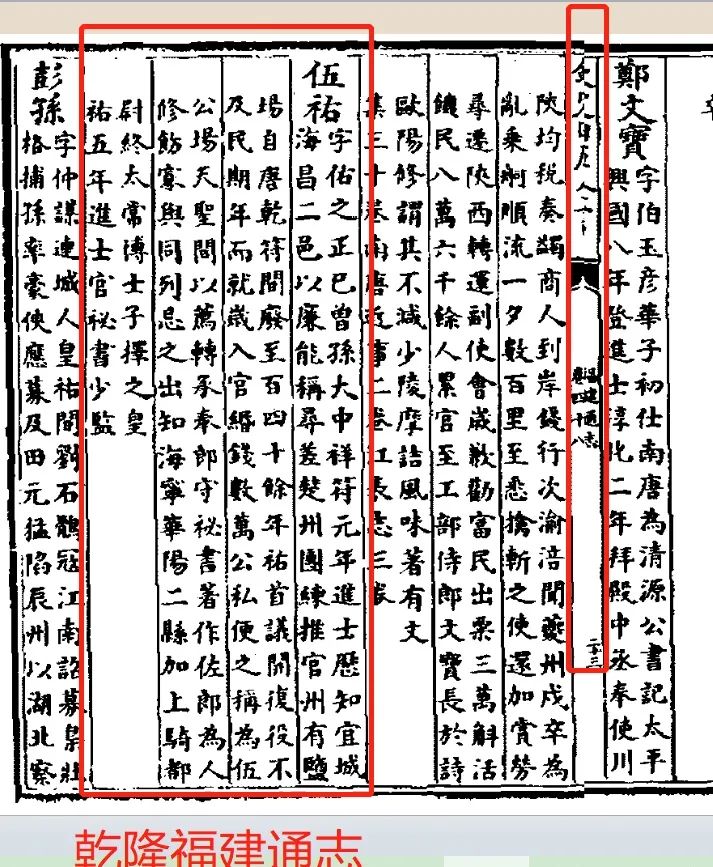 鄭文寶
字伯玉彥華子初仕南唐為清源公書記太平
興國八年登進士淳化二年拜殿中丞奉使川
福建通志
卷四十八
二十三
陝均稅奏蠲商人到岸錢行次渝涪聞夔州戍卒為
亂乘舸順流一夕數百里至悉擒斬之使還加賞勞
尋遷陝西轉運副使會歲歉勸富民出粟三萬斛活
饑民八萬六千餘人累官至工部侍郎文寶長於詩
歐陽修謂其不減少陵摩詰風味著有文
集三十卷南唐近事二卷江表志三卷
伍祐
字佑之正已曾孫大中祥符元年進士歷知宜城
海昌二邑以廉能稱尋差楚州團練推官州有鹽
場自唐乾符間廢至百四十餘年祐首議開復役不
及民期年而就歲入官緡錢數萬公私便之稱為伍
公場天聖間以薦轉承奉郎守祕書著作佐郎為人
修飭寡與同列忌之出知海寧華陽二縣加上騎都
尉終太常博士子擇之皇
祐五年進士官祕書少監
彭孫
字仲謀連城人皇祐間劉石鶻寇江南詔募梟壯
格捕孫率豪俠應募及田元猛陷辰州以湖北察
乾隆福建通志